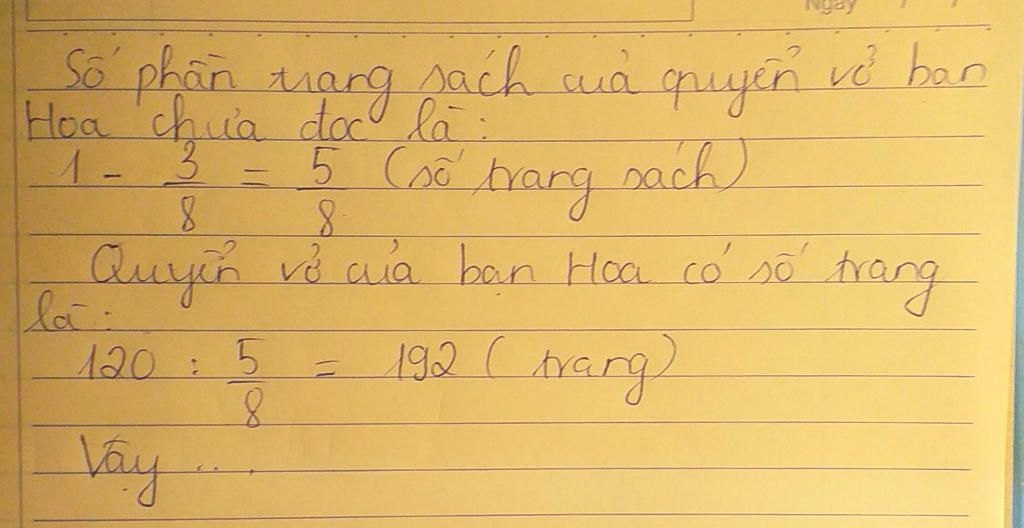 Ngày / /
Số phần trang sách của quyển vở bạn
Hoa chưa đọc là:
1 - 3/8 = 5/8 (số trang sách)
Quyển vở của bạn Hoa có số trang
là:
120 : 5/8 = 192 (trang)
Vậy ....